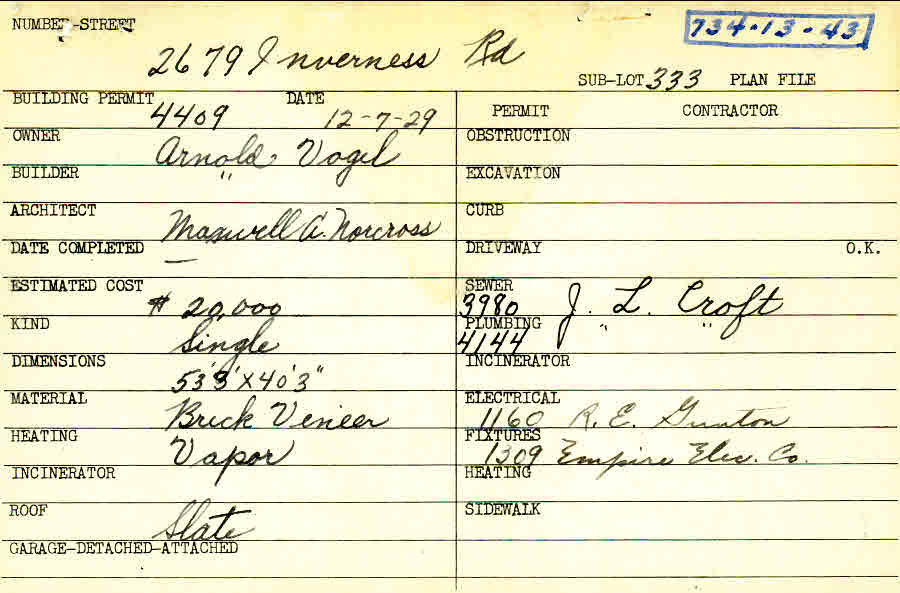 NUMBER-STREET
734-13-43
2679 Inverness Rd
SUB-LOT 333 PLAN FILE
BUILDING PERMIT 4409 DATE 12-7-29
OWNER Arnold Vogel
BUILDER "
ARCHITECT Maxwell A. Norcross
DATE COMPLETED —
ESTIMATED COST $ 20,000
KIND Single
DIMENSIONS 53'3"X40'3"
MATERIAL Brick Veneer
HEATING Vapor
INCINERATOR
ROOF Slate
GARAGE-DETACHED-ATTACHED
PERMIT CONTRACTOR
OBSTRUCTION
EXCAVATION
CURB
DRIVEWAY O.K.
SEWER 3980 J. L. Croft
PLUMBING 4144 " "
INCINERATOR
ELECTRICAL 1160 R. E. Gunton
FIXTURES 1309 Empire Elec. Co.
HEATING
SIDEWALK